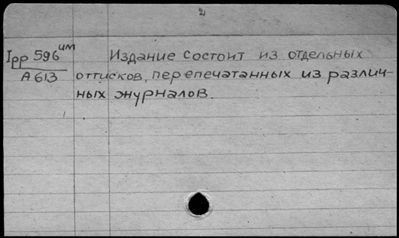 2
Ipp 596 им
А 613
Издание состоит из отдельных
оттисков, перепечатанных из различ-
ных журналов.